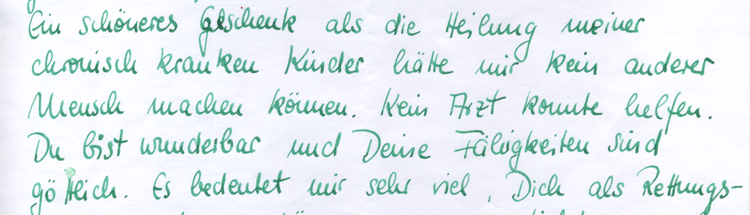 Ein schöneres Geschenk als die Heilung meiner
chronisch kranken Kinder hätte mir kein anderer
Mensch machen können. Kein Arzt konnte helfen.
Du bist wunderbar und Deine Fähigkeiten sind
göttlich. Es bedeutet mir sehr viel, Dich als Rettungs-